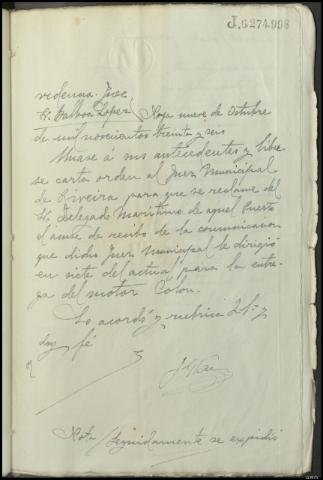 J.6274.998
videncia. Juez
Sr. Balboa Lopez Noya nueve de Octubre
de mil novecientos treinta y seis
Unase á sus antecedentes y libre
se carta orden al Juez Municipal
de Riveira para que se reclame del
Sr. Delegado Maritimo de aquel Puerto
el acuse de recibo de la comunicacion
que dicho Juez Municipal le dirigió
en siete del actual para la entre-
ga del motor Colon.
Lo acordó y rubrica S.Sª y
doy fé
Nota/ Seguidamente se expidió